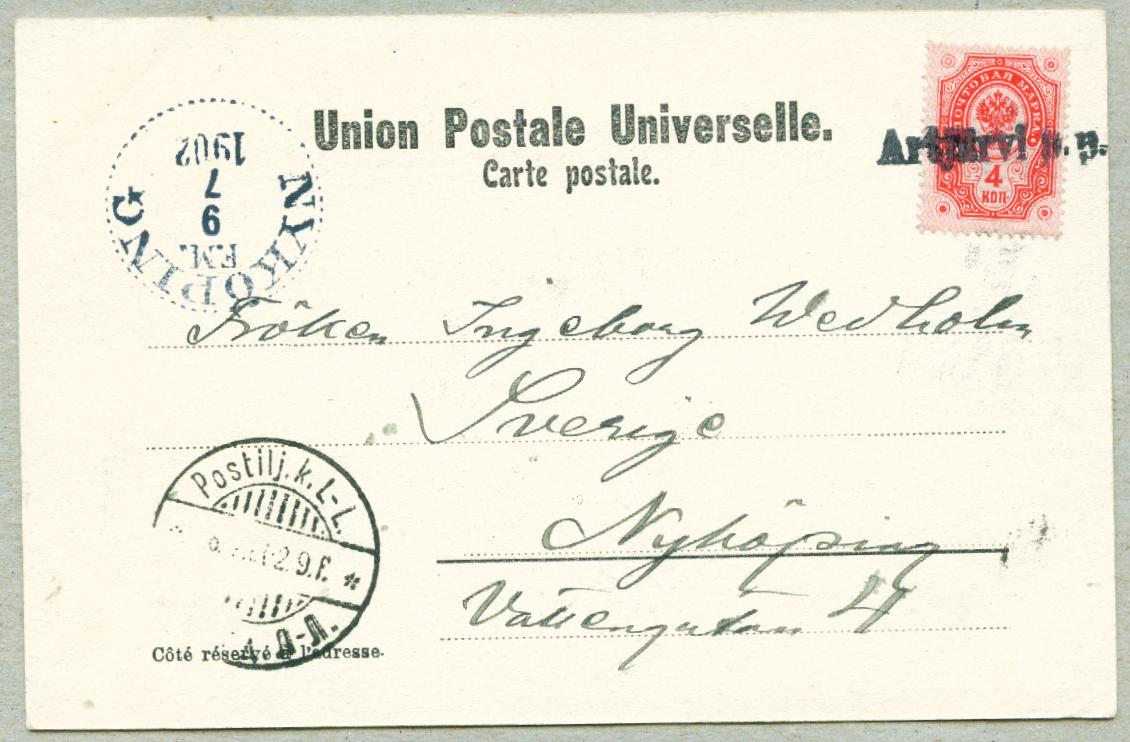 Union Postale Universelle.
Carte postale.
ПОЧТОВАЯ МАРКА
4
КОП
Artjärvi p. p.
NYKÖPING
1902
7
9
F.M.
Fröken Ingeborg Wedholm
Sverige
Nyköping
Vattengatan
Postilj.k.L-L.
2.9.f.
Л-Л.
Côté réservé à l'adresse.